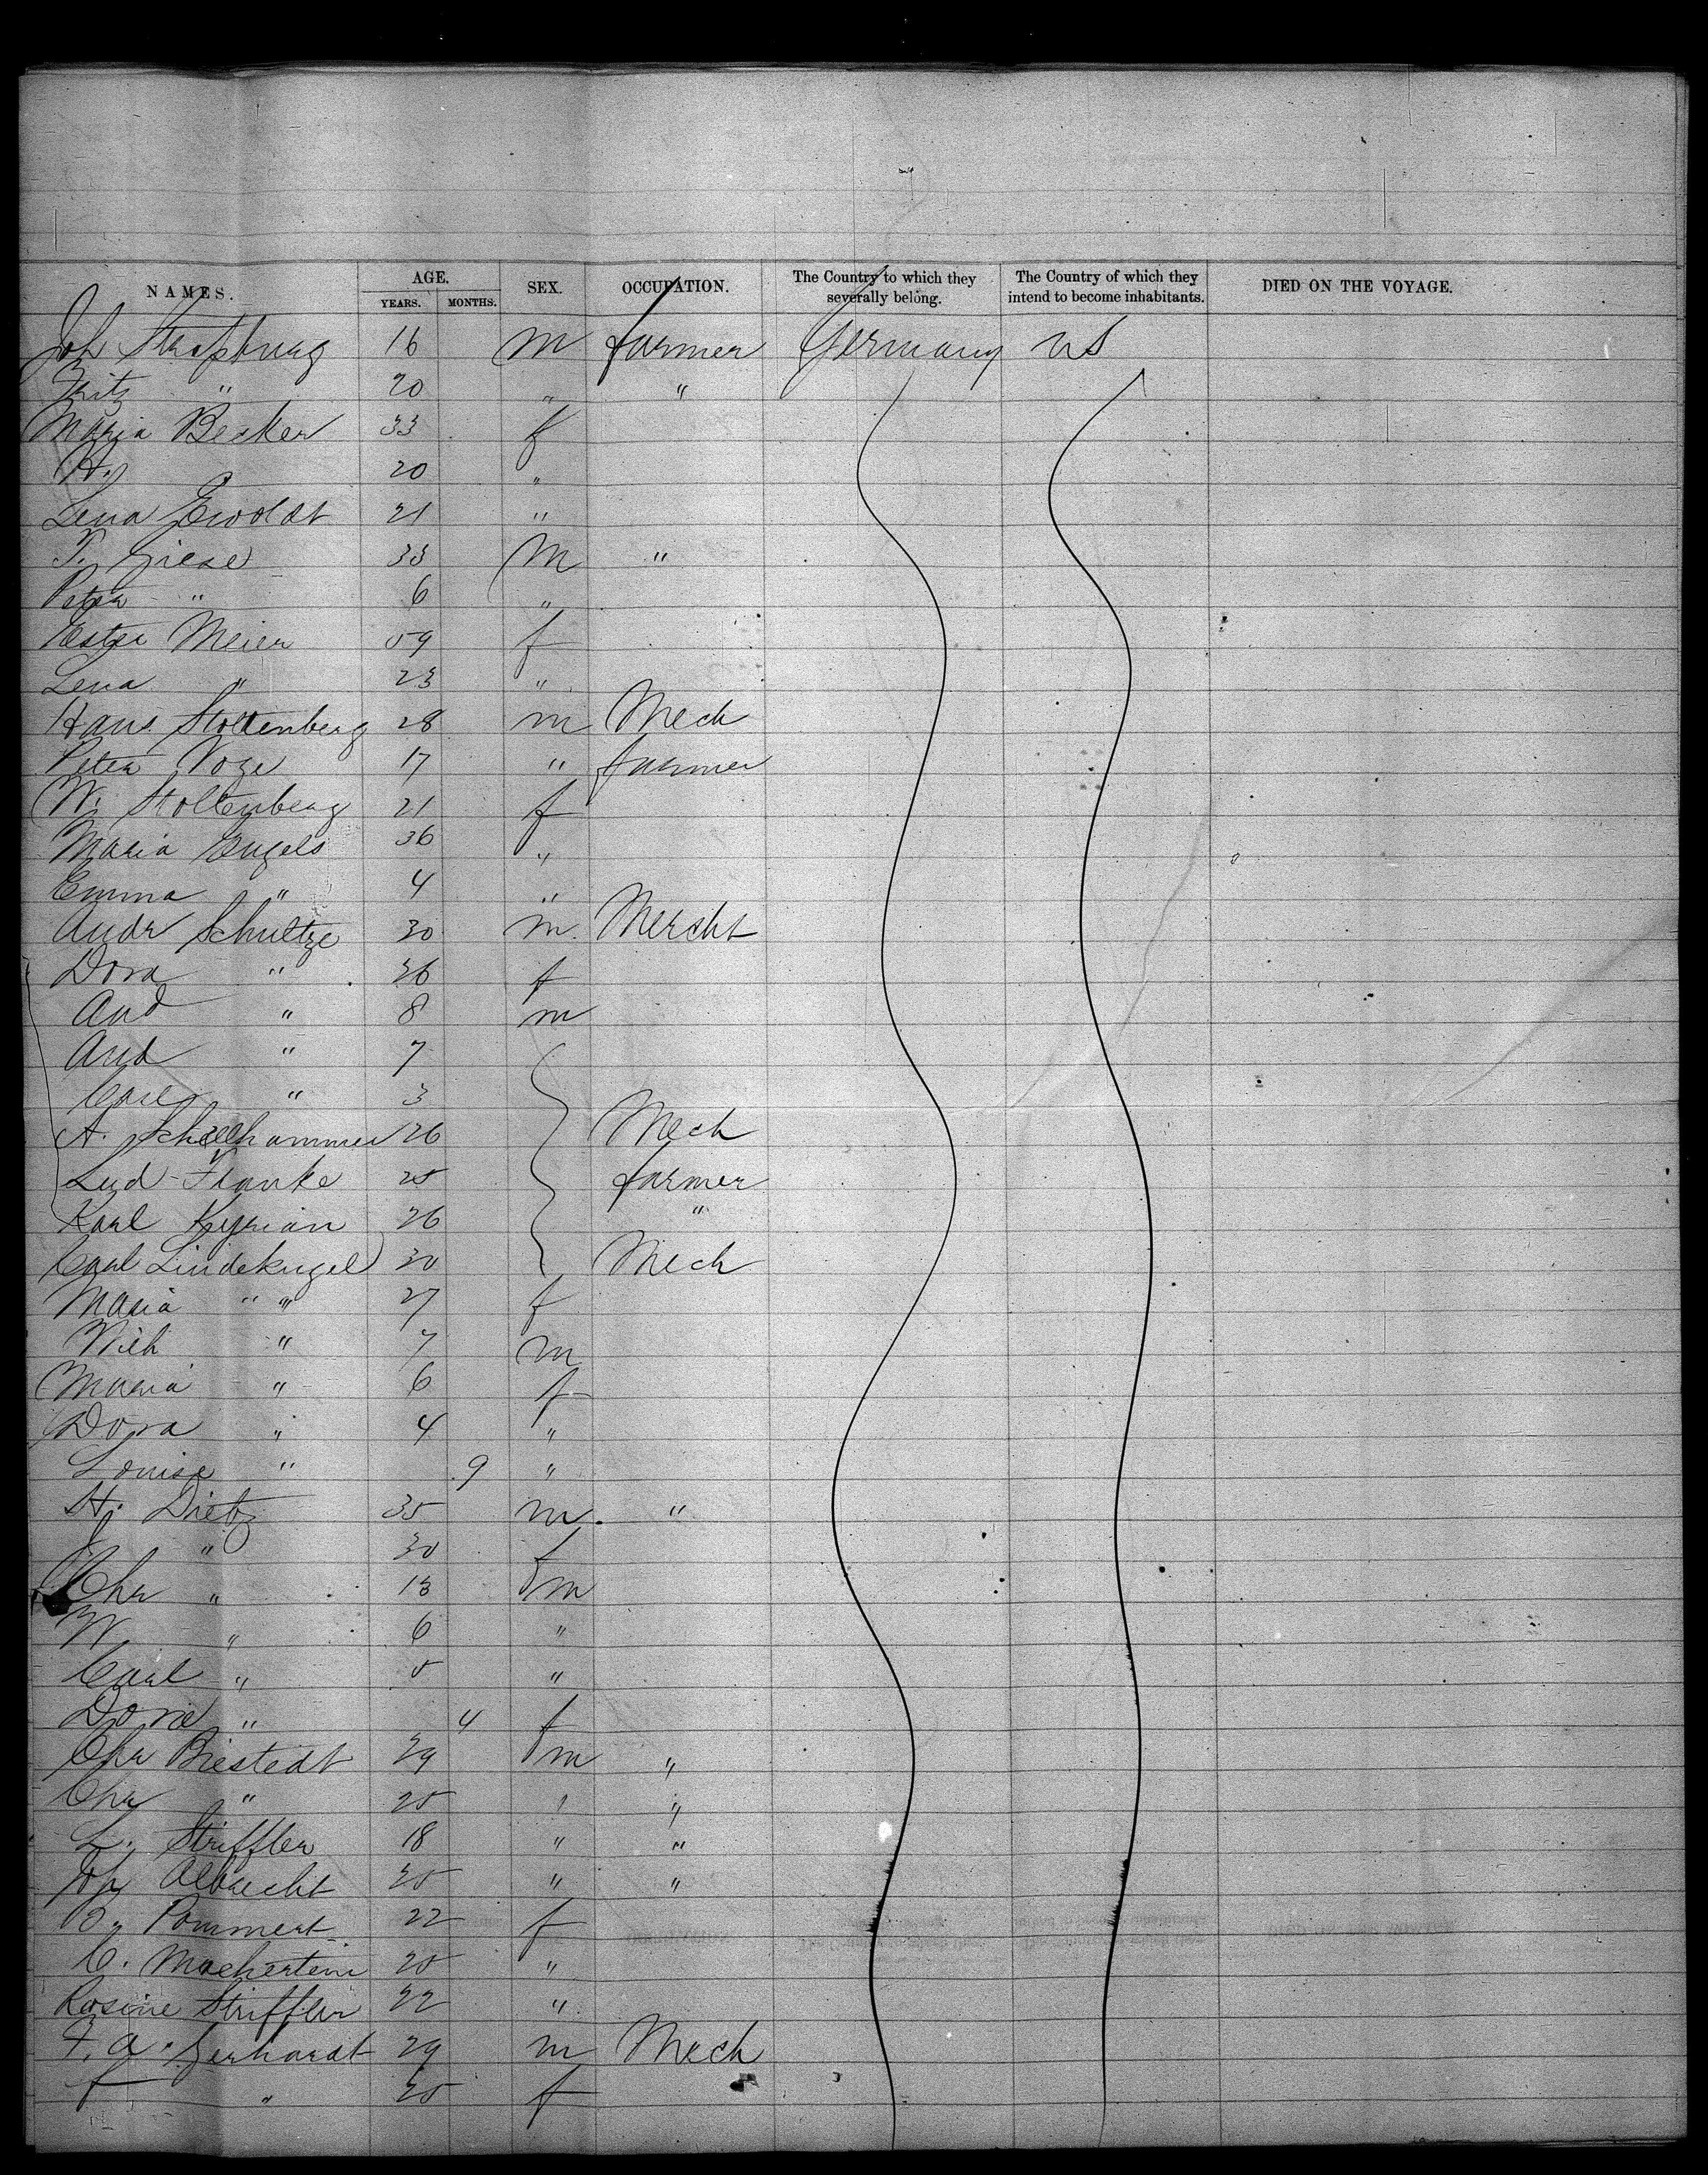 NAMES. AGE. SEX. OCCUPATION. The Country to which they severally belong. The Country of which they intend to become inhabitants. DIED ON THE VOYAGE.
YEARS. MONTHS.
Joh Strassburg 16 m farmer Germany US
Fritz " 20 " "
Maria Becker 33 f
H. 20 "
Lena Ewoldt 21 "
T. Giese 33 M "
Peter " 6 "
Meier 59 f
Lena " 23 "
Hans Stoltenberg 28 m Mech
Peter Voge 17 " farmer
W. Stoltenberg 21 f
Maria Engels 36 "
Emma " 4 "
Andr Schultze 30 m Mercht
Dora " 36 f
And " 8 m
And " 7
Carl " 3
A. Schellhammer 26 Mech
Lud Franke 25 farmer
Karl Kyrian 26 "
Carl Lindekugel 30 Mech
Maria " " 27 f
" 7 m
Maria " 6 f
Dora " 4 "
Louise " 9 "
H. Dietz 35 m "
J " 30 f
Chr " 13 m
W " 6 "
Carl " 5 "
Dora " 4 f
Chr Briestedt 29 m "
Chr " 25 "
L. Striffler 18 " "
Albrecht " "
Pommert 22 f
C. 25 "
Rosine Striffler 22 "
F. A. Gerhardt 29 m Mech
f " 25 f